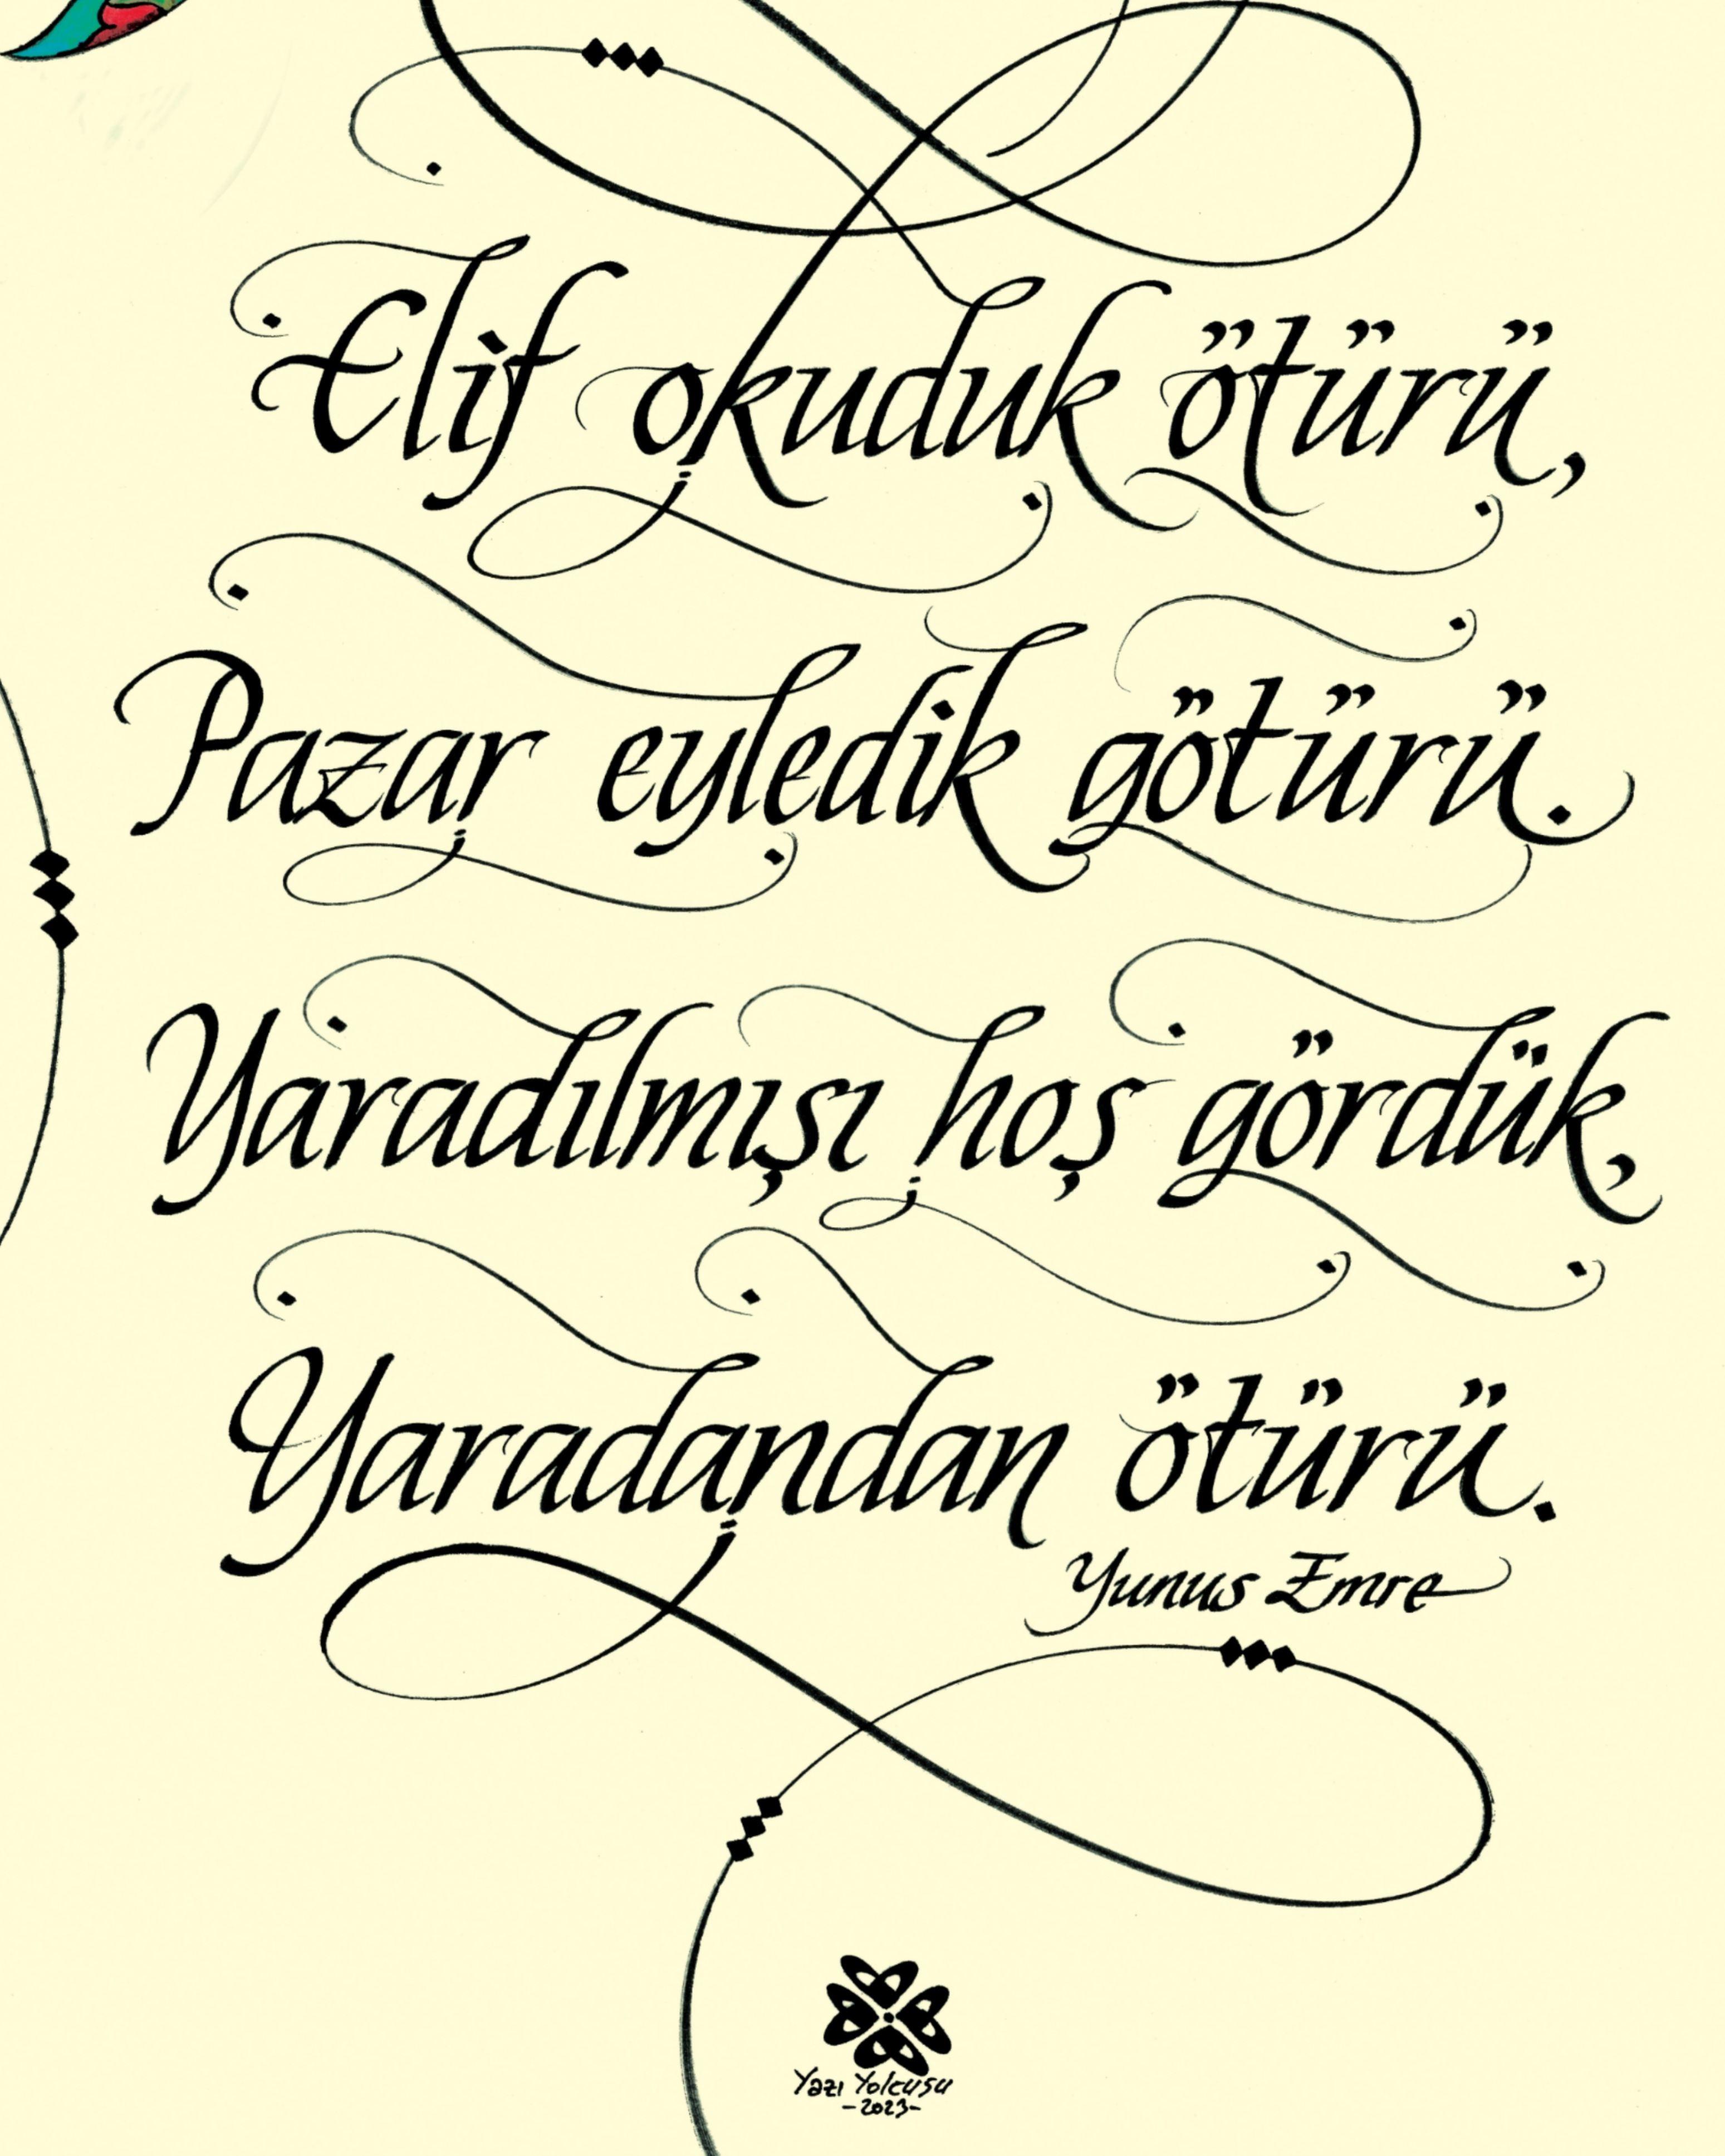 Elif okuduk ötürü,
Pazar eyledik götürü.
Yaradılmışı hoş gördük,
Yaradandan ötürü.
Yunus Emre
Yazı Yolcusu
-2023-